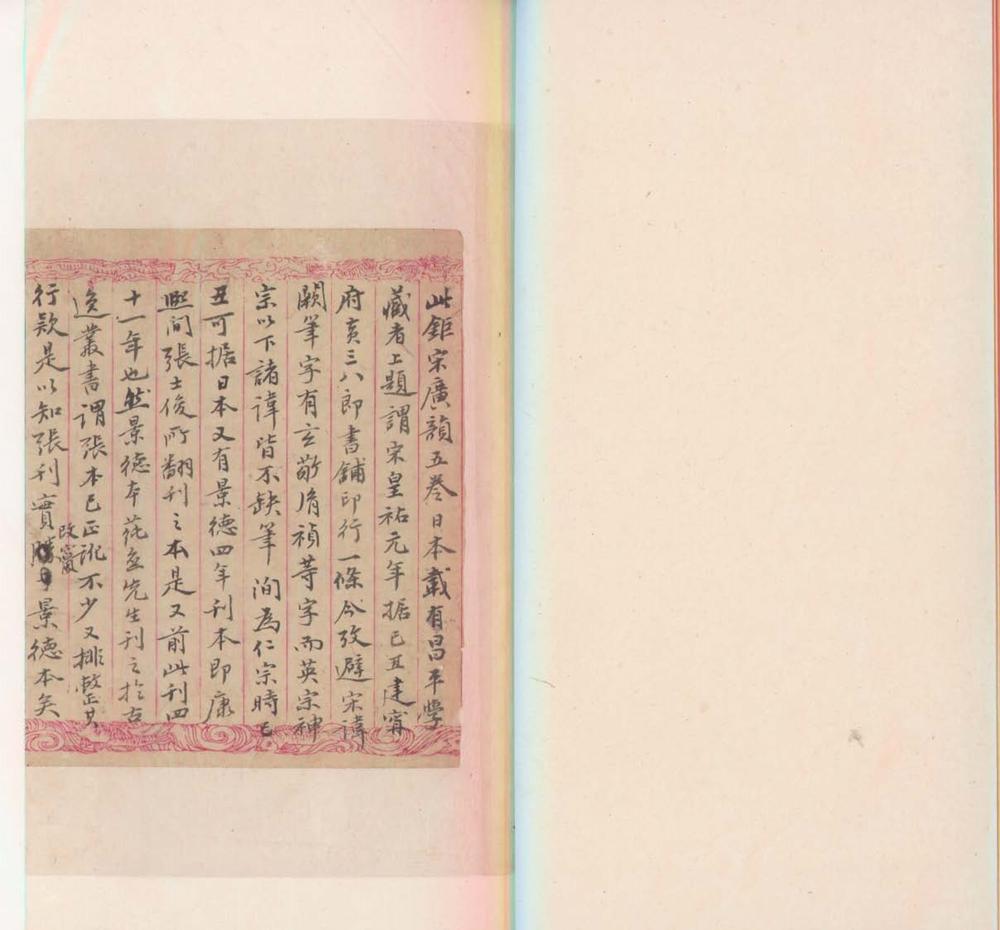 此鉅宋廣韻五卷日本載有昌平學
藏者上題謂宋皇祐元年据己丑建甯
府黃三八郎書鋪印行一條今攷避宋諱
闕筆字有玄敬㣧禎等字而英宗神
宗以下諸諱皆不缺筆洵為仁宗時己
丑可据日本又有景德四年刊本即康
熙间張士俊所翻刊之本是又前此刊四
十一年也然景德本蒓盦先生刊之於古
逸叢書謂張本已正訛不少又排整其
行款是以知張刊實勝景德本矣
改竄